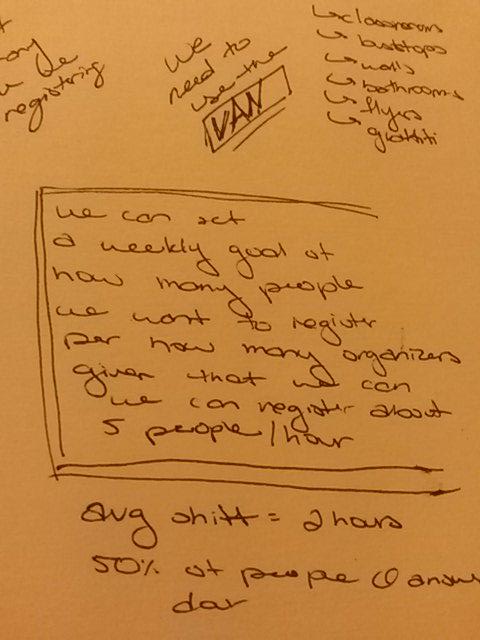 registering
we
need to
use the
VAN
↳ classrooms
↳ busstops
↳ walls
↳ bathrooms
↳ flyers
↳ graffiti
we can set
a weekly goal of
how many people
we want to register
per how many organizers
given that we can
we can register about
5 people/hour
avg shift = 2 hours
50% of people @
door